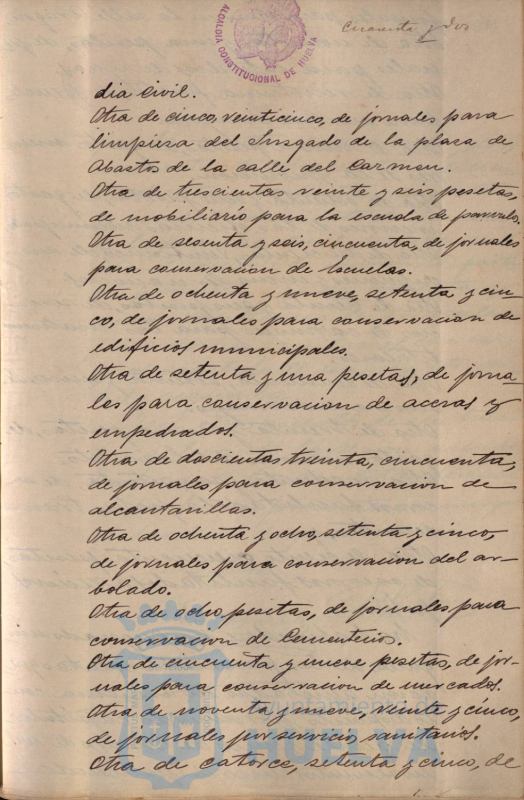 ALCALDIA CONSTITUCIONAL DE HUELVA
Cuarenta y dos
dia civil.
Otra de cinco, veinticinco, de jornales para
limpieza del Juzgado de la plaza de
Abastos de la calle del Carmen.
Otra de trescientas veinte y seis pesetas,
de mobiliario para la escuela de parvulos.
Otra de sesenta y seis, cincuenta, de jornales
para conservacion de Escuelas.
Otra de ochenta y nueve, setenta y cin-
co, de jornales para conservacion de
edificios municipales.
Otra de setenta y una pesetas, de jorna-
les para conservacion de aceras y
empedrados.
Otra de doscientas treinta, cincuenta,
de jornales para conservacion de
alcantarillas.
Otra de ochenta y ocho, setenta y cinco,
de jornales para conservacion del ar-
bolado.
Otra de ocho pesetas, de jornales para
conservacion de Cementerios.
Otra de cincuenta y nueve pesetas, de jor-
nales para conservacion de mercados.
Otra de noventa y nueve, veinte y cinco,
de jornales por servicio sanitarios.
Otra de catorce, setenta y cinco, de
ayuntamiento de
HUELVA